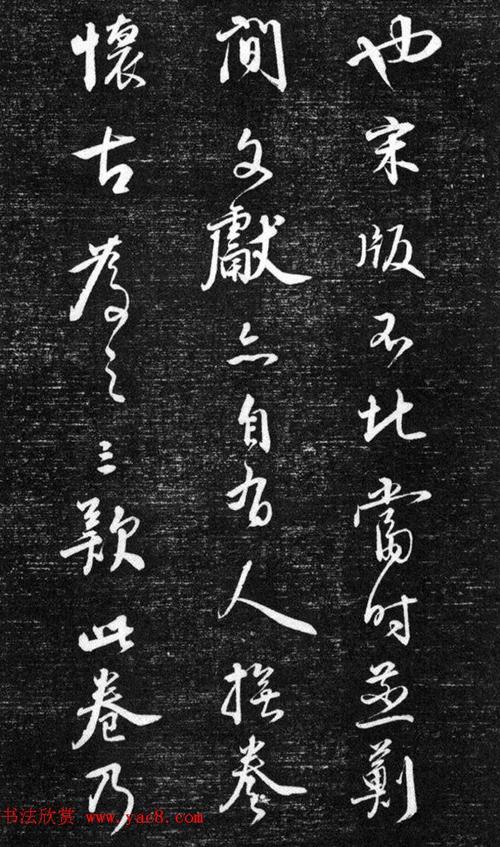 也宋版不北當時燕薊
間文獻亦自有人撫卷
懷古為之三歎此卷乃
书法欣赏 www.yac8.com